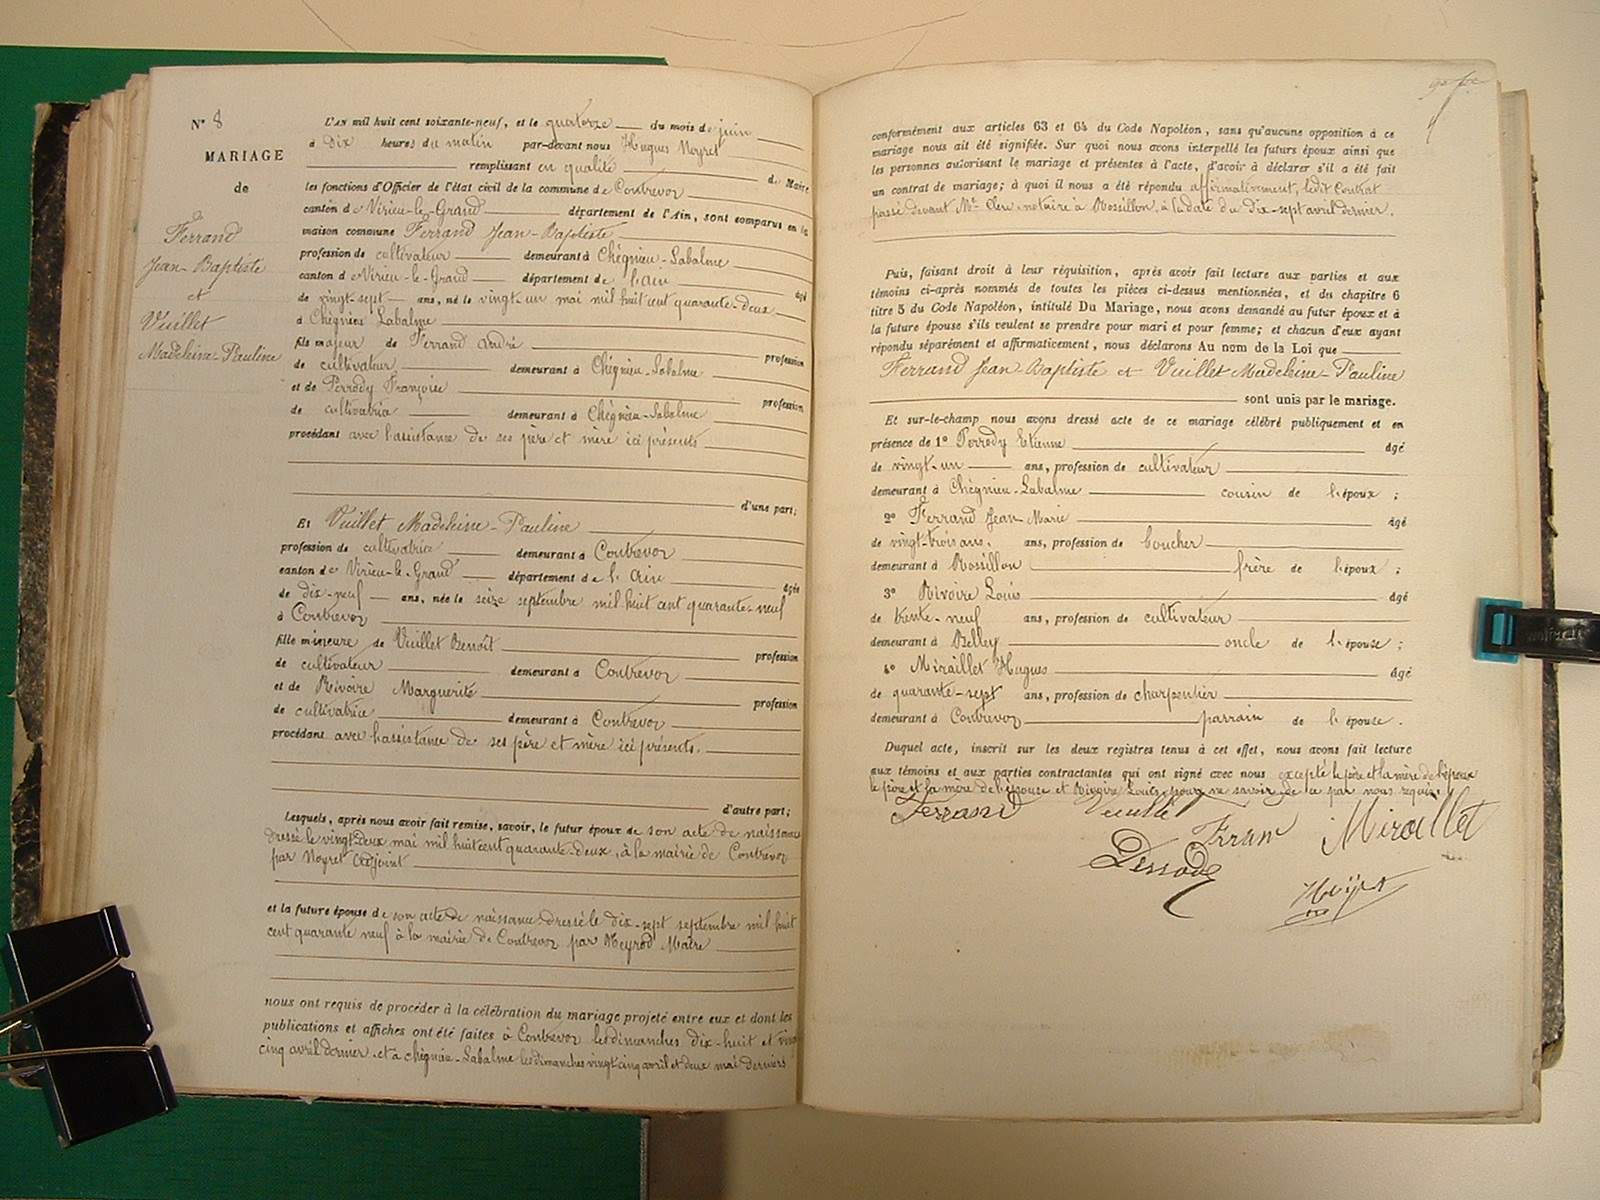 N° 8
MARIAGE
de
Ferrand
Jean-Baptiste
et
Vuillet
Madeleine-Pauline
L'AN mil huit cent soixante-neuf, et le quatorze du mois de juin
à Dix heures du matin par-devant nous Hugues Neyret
remplissant en qualité de Maire
les fonctions d'Officier de l'état civil de la commune de Contrevoz
canton de Virieu-le-Grand département de l'Ain, sont comparus en la
maison commune Ferrand Jean-Baptiste
profession de cultivateur demeurant à Chégnieu-Labalme
canton de Virieu-le-Grand département de l'ain âgé
de vingt-sept ans, né le vingt-un mai mil huit cent quarante-deux
à Chégnieu Labalme
fils majeur de Ferrand André profession
de cultivateur demeurant à Chégnieu-Labalme
et de Perrody Françoise profession
de cultivatrice demeurant à Chégnieu-Labalme
procédant avec l'assistance de ses père et mère ici présents
d'une part;
Et Vuillet Madeleine-Pauline
profession de cultivatrice demeurant à Contrevoz
canton de Virieu-le-Grand département de l'Ain âgée
de dix-neuf ans, née le seize septembre mil huit cent quarante-neuf
à Contrevoz
fille mineure de Vuillet Benoît profession
de cultivateur demeurant à Contrevoz
et de Rivoire Marguerite profession
de cultivatrice demeurant à Contrevoz
procédant avec l'assistance de ses père et mère ici présents.
d'autre part;
Lesquels, après nous avoir fait remise, savoir, le futur époux de son acte de naissance
dressé le vingt-deux mai mil huit cent quarante-deux, à la mairie de Contrevoz
par Neyret adjoint
et la future épouse de son acte de naissance dressé le dix-sept septembre mil huit
cent quarante neuf à la mairie de Contrevoz par Maire
nous ont requis de procéder à la célébration du mariage projeté entre eux et dont les
publications et affiches ont été faites à Contrevoz les dimanches dix-huit et vingt
cinq avril dernier et à Chégnieu-Labalme les dimanches vingt cinq avril et deux mai derniers
conformément aux articles 63 et 64 du Code Napoléon, sans qu'aucune opposition à ce
mariage nous ait été signifiée. Sur quoi nous avons interpellé les futurs époux ainsi que
les personnes autorisant le mariage et présentes à l'acte, d'avoir à déclarer s'il a été fait
un contrat de mariage; à quoi il nous a été répondu affirmativement, ledit Contrat
passé devant Me Clerc notaire à Rossillon, à la date du dix-sept avril dernier.
Puis, faisant droit à leur réquisition, après avoir fait lecture aux parties et aux
témoins ci-après nommés de toutes les pièces ci-dessus mentionnées, et du chapitre 6
titre 5 du Code Napoléon, intitulé Du Mariage, nous avons demandé au futur époux et à
la future épouse s'ils veulent se prendre pour mari et pour femme; et chacun d'eux ayant
répondu séparément et affirmativement, nous déclarons Au nom de la Loi que
Ferrand Jean Baptiste et Vuillet Madeleine-Pauline
sont unis par le mariage.
Et sur-le-champ nous avons dressé acte de ce mariage célébré publiquement et en
présence de 1° Perrody Etienne âgé
de vingt-un ans, profession de cultivateur
demeurant à Chégnieu-Labalme cousin de l'époux;
2° Ferrand Jean-Marie âgé
de vingt-trois ans. ans, profession de boucher
demeurant à Rossillon frère de l'époux;
3° Rivoire Louis âgé
de trente-neuf ans, profession de cultivateur
demeurant à Belley oncle de l'épouse;
4° Miraillet Hugues âgé
de quarante-sept ans, profession de charpentier
demeurant à Contrevoz parrain de l'épouse.
Duquel acte, inscrit sur les deux registres tenus à cet effet, nous avons fait lecture
aux témoins et aux parties contractantes qui ont signé avec nous excepté le père et la mère de l'époux
le père et la mère de l'épouse et Rivoire Louis pour ne savoir de ce par nous requis.
Ferrand Vuillet
Feran Miraillet